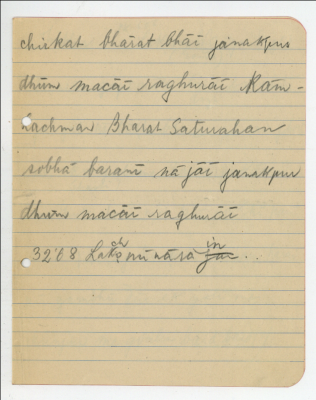 chirkat bhārat bhāī janakpur
dhūm macāī raghurāī Ram-
Lachman Bharat Saturahan
sobhā baranī nā jāī janakpur
dhūm macāī raghurāī
32'08